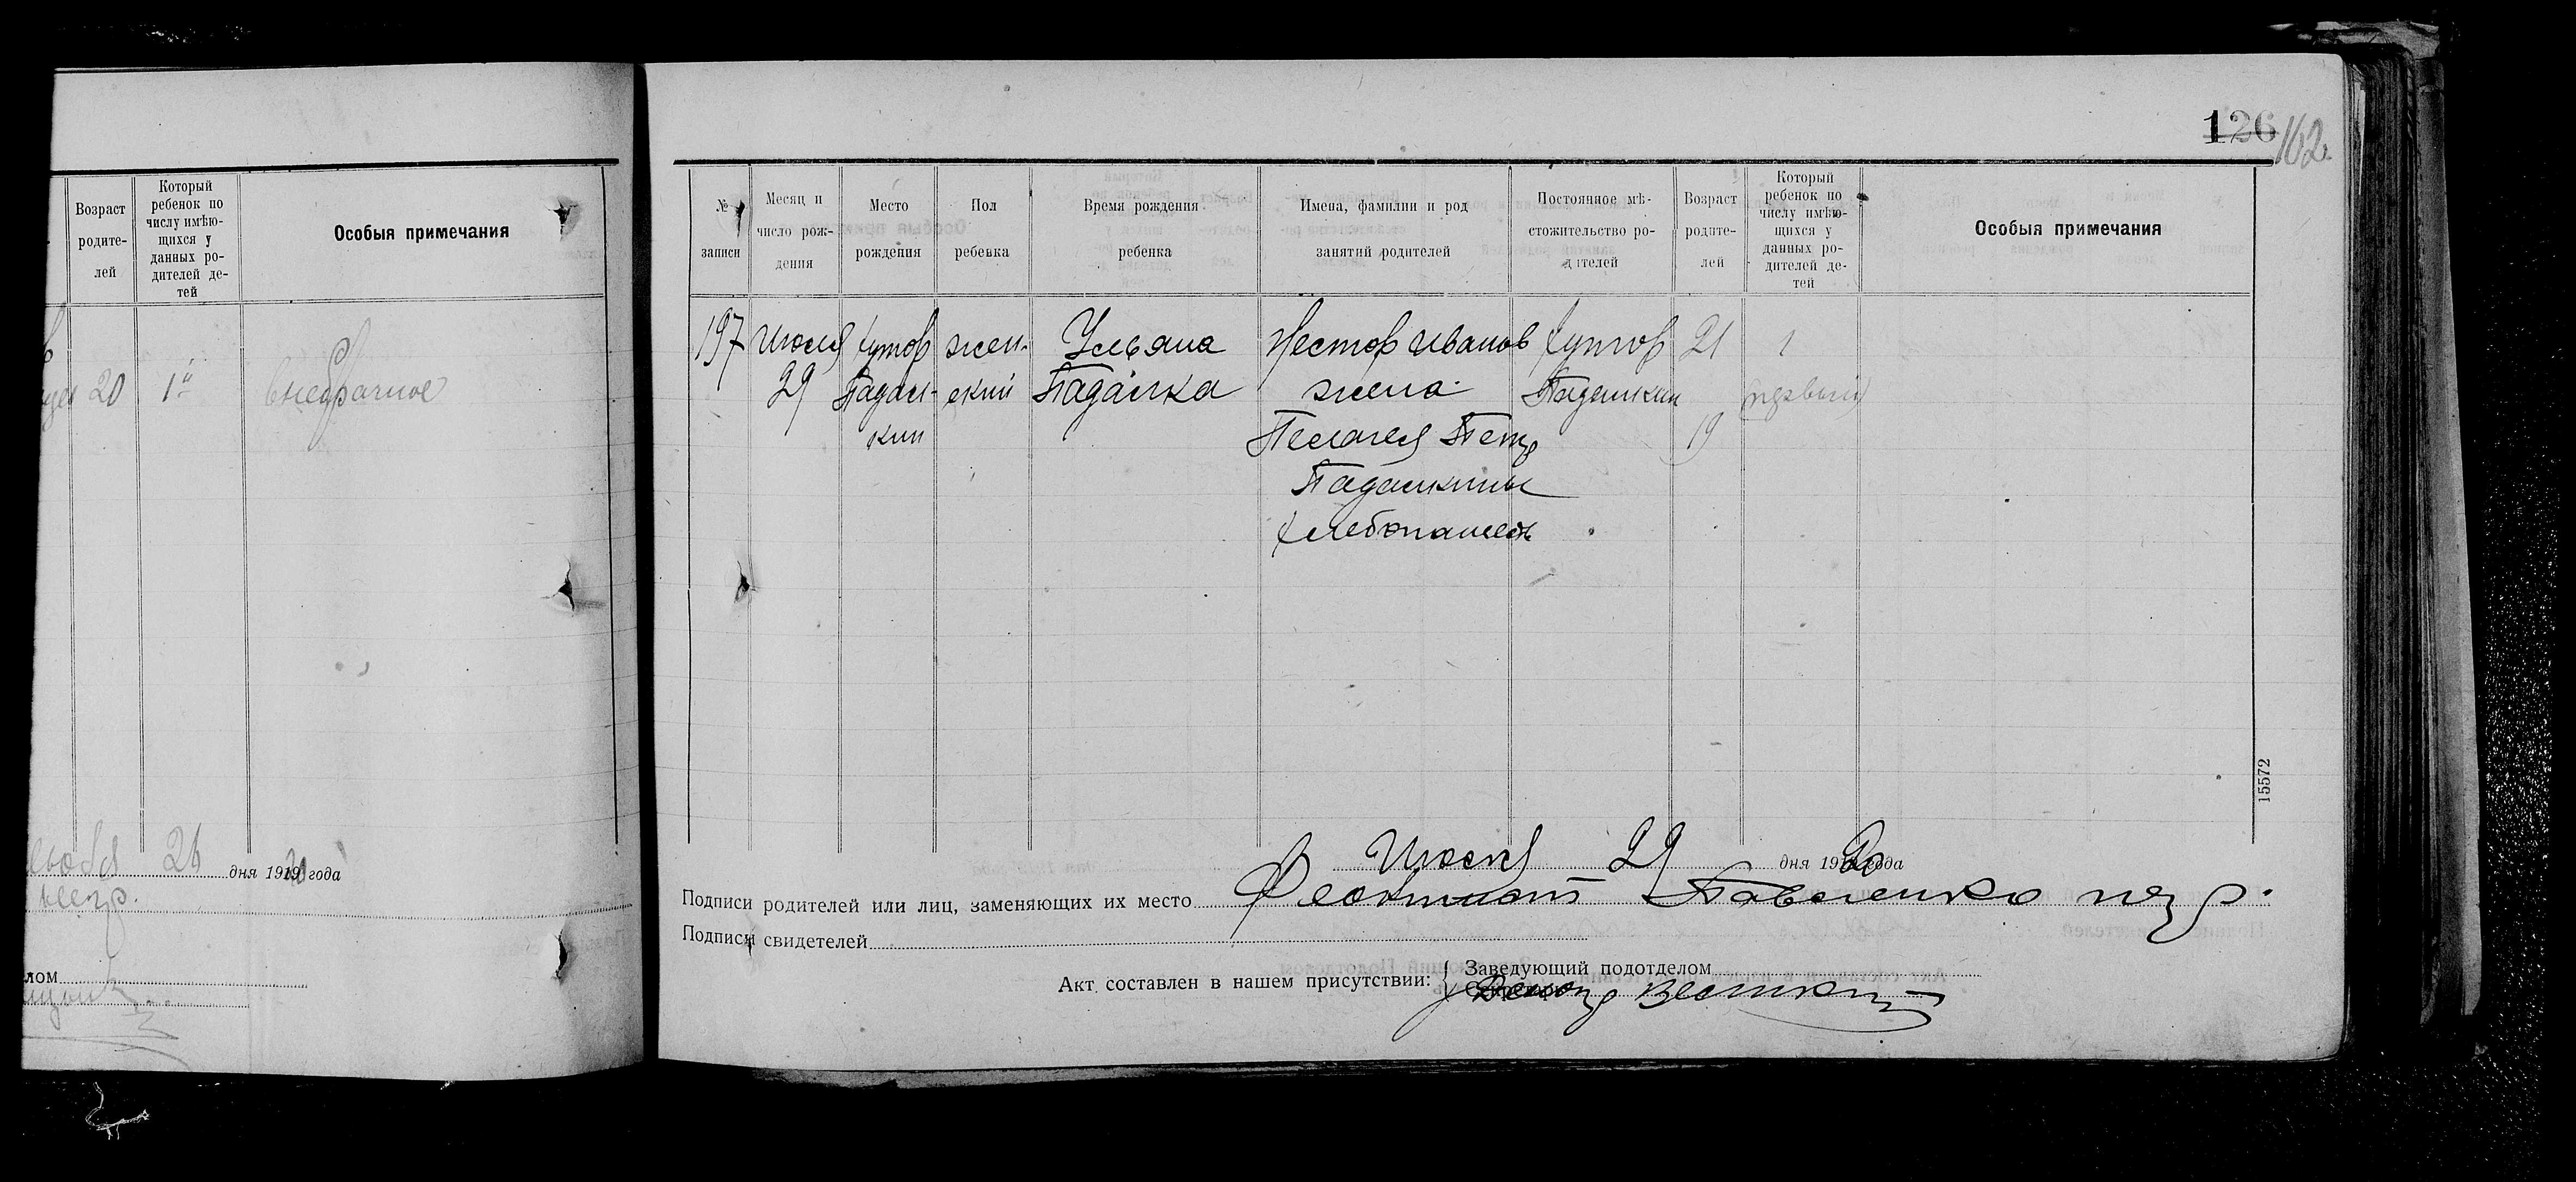 Возраст
родите-
лей
Который
ребенок по
числу имѣю-
щихся у
данных ро-
дителей де-
тей
Особыя примечания
20 1й внебрачное
26 дня 1919 года
лом
126 162
№
записи
Месяц и
число рож-
дения
Место
рождения
Пол
ребенка
Время рождения
ребенка
Имена, фамилии и род
занятий родителей
Постоянное мѣ-
стожительство ро-
дителей
Возраст
родите-
лей
Который
ребенок по
числу имѣю-
щихся у
данных ро-
дителей де-
тей
Особыя примечания
197 Июля хутор жен- Ульяна Нестор Иванов хутор 21 1
29 Падал- ский Падалка жена Падалкин (первый)
кин Пелагея Петр 19
Падалкины
хлебопашест
15572
Июля 29 дня 1920 года
Подписи родителей или лиц, заменяющих их место Феоктист Павленко
Подписи свидетелей
Акт составлен в нашем присутствии: { Заведующий подотделом